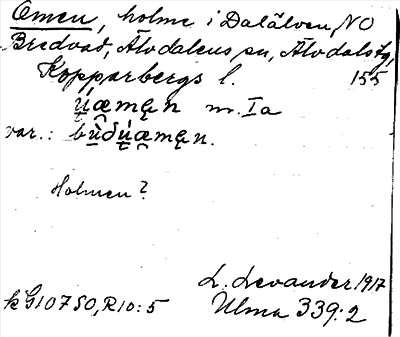 Omen, holme i Dalälven, NO
Bredvad, Älvdalens sn, Älvdals tg,
Kopparbergs l. 155
m. Ia
var.:
Holmen?
L. Levander 1917
k G10750, R10:5 Ulma 339:2